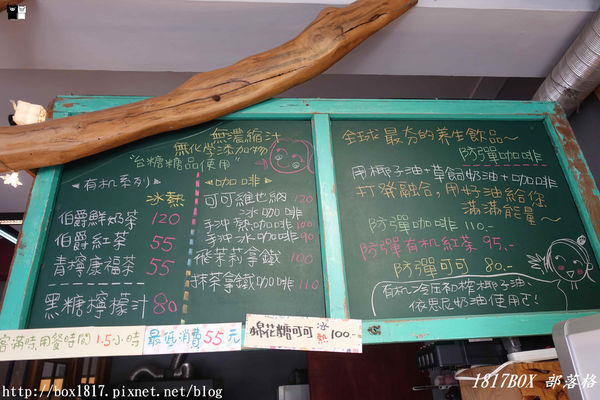 無濃縮汁
無化學添加物
"台糖糖品使用"
◄有机系列►
冰熱
伯爵鮮奶茶 120
伯爵紅茶 55
青檸康福茶 55
黑糖檸檬汁 80
◄咖啡►
可可維也納 120
冰咖啡
手沖熱咖啡 100
手沖冰咖啡 90
100
抹茶拿鐵咖啡 110
全球最夯的養生飲品~
防彈咖啡
用椰子油+草飼奶油+咖啡
打發融合,用好油給您
滿滿能量~
防彈咖啡 110.-
防彈有机紅茶 95.-
防彈可可 80.-
有机冷压初榨椰子油、
依思尼奶油使用已!
客滿時用餐時間 1.5小時
最低消費55元
棉花糖可可 冰熱 100.-
http://box1817.pixnet.net/blog
1817BOX 部落格